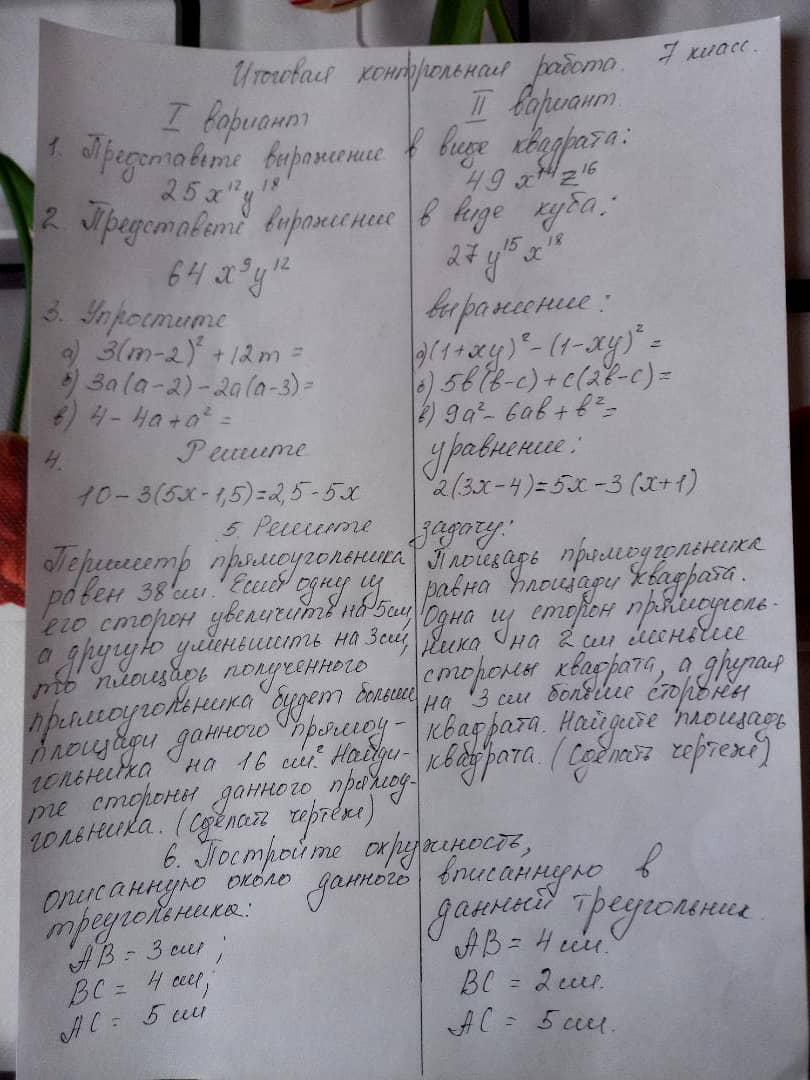 Итоговая контрольная работа. 7 класс.
I вариант
II вариант
1. Представьте выражение в виде квадрата:
25x¹²y¹⁸
49x¹⁴z¹⁶
2. Представьте выражение в виде куба:
64x⁹y¹²
27y¹⁵x¹⁸
3. Упростите выражение:
а) 3(m-2)² + 12m =
б) 3a(a-2) - 2a(a-3) =
в) 4 - 4a + a² =
а) (1+xy)² - (1-xy)² =
б) 5b(b-c) + c(2b-c) =
в) 9a² - 6ab + b² =
4. Решите уравнение:
10 - 3(5x - 1,5) = 2,5 - 5x
2(3x - 4) = 5x - 3(x+1)
5. Решите задачу:
Периметр прямоугольника
равен 38 см. Если одну из
его сторон увеличить на 5см,
а другую уменьшить на 3см,
то площадь полученного
прямоугольника будет больше
площади данного прямоу-
гольника на 16 см². Найди-
те стороны данного прямоу-
гольника. (Сделать чертеж)
Площадь прямоугольника
равна площади квадрата.
Одна из сторон прямоуголь-
ника на 2 см меньше
стороны квадрата, а другая
на 3 см больше стороны
квадрата. Найдите площадь
квадрата. (Сделать чертеж)
6. Постройте окружность,
описанную около данного
треугольника:
AB = 3 см;
BC = 4 см;
AC = 5 см
вписанную в
данный треугольник.
AB = 4 см.
BC = 2 см.
AC = 5 см.